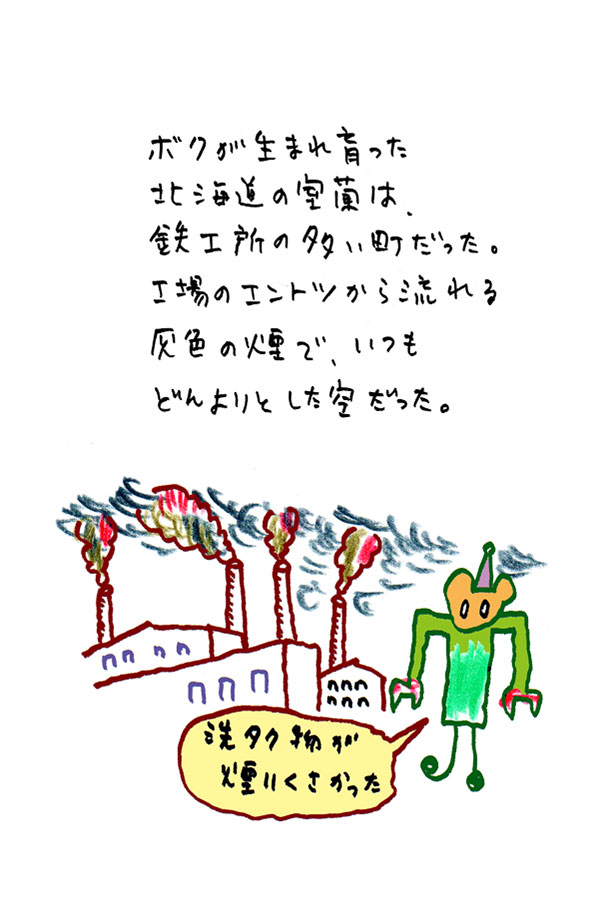 ボクが生まれ育った
北海道の室蘭は、
鉄工所の多い町だった。
工場のエントツから流れる
灰色の煙で、いつも
どんよりとした空だった。
洗タク物が
煙リくさかった